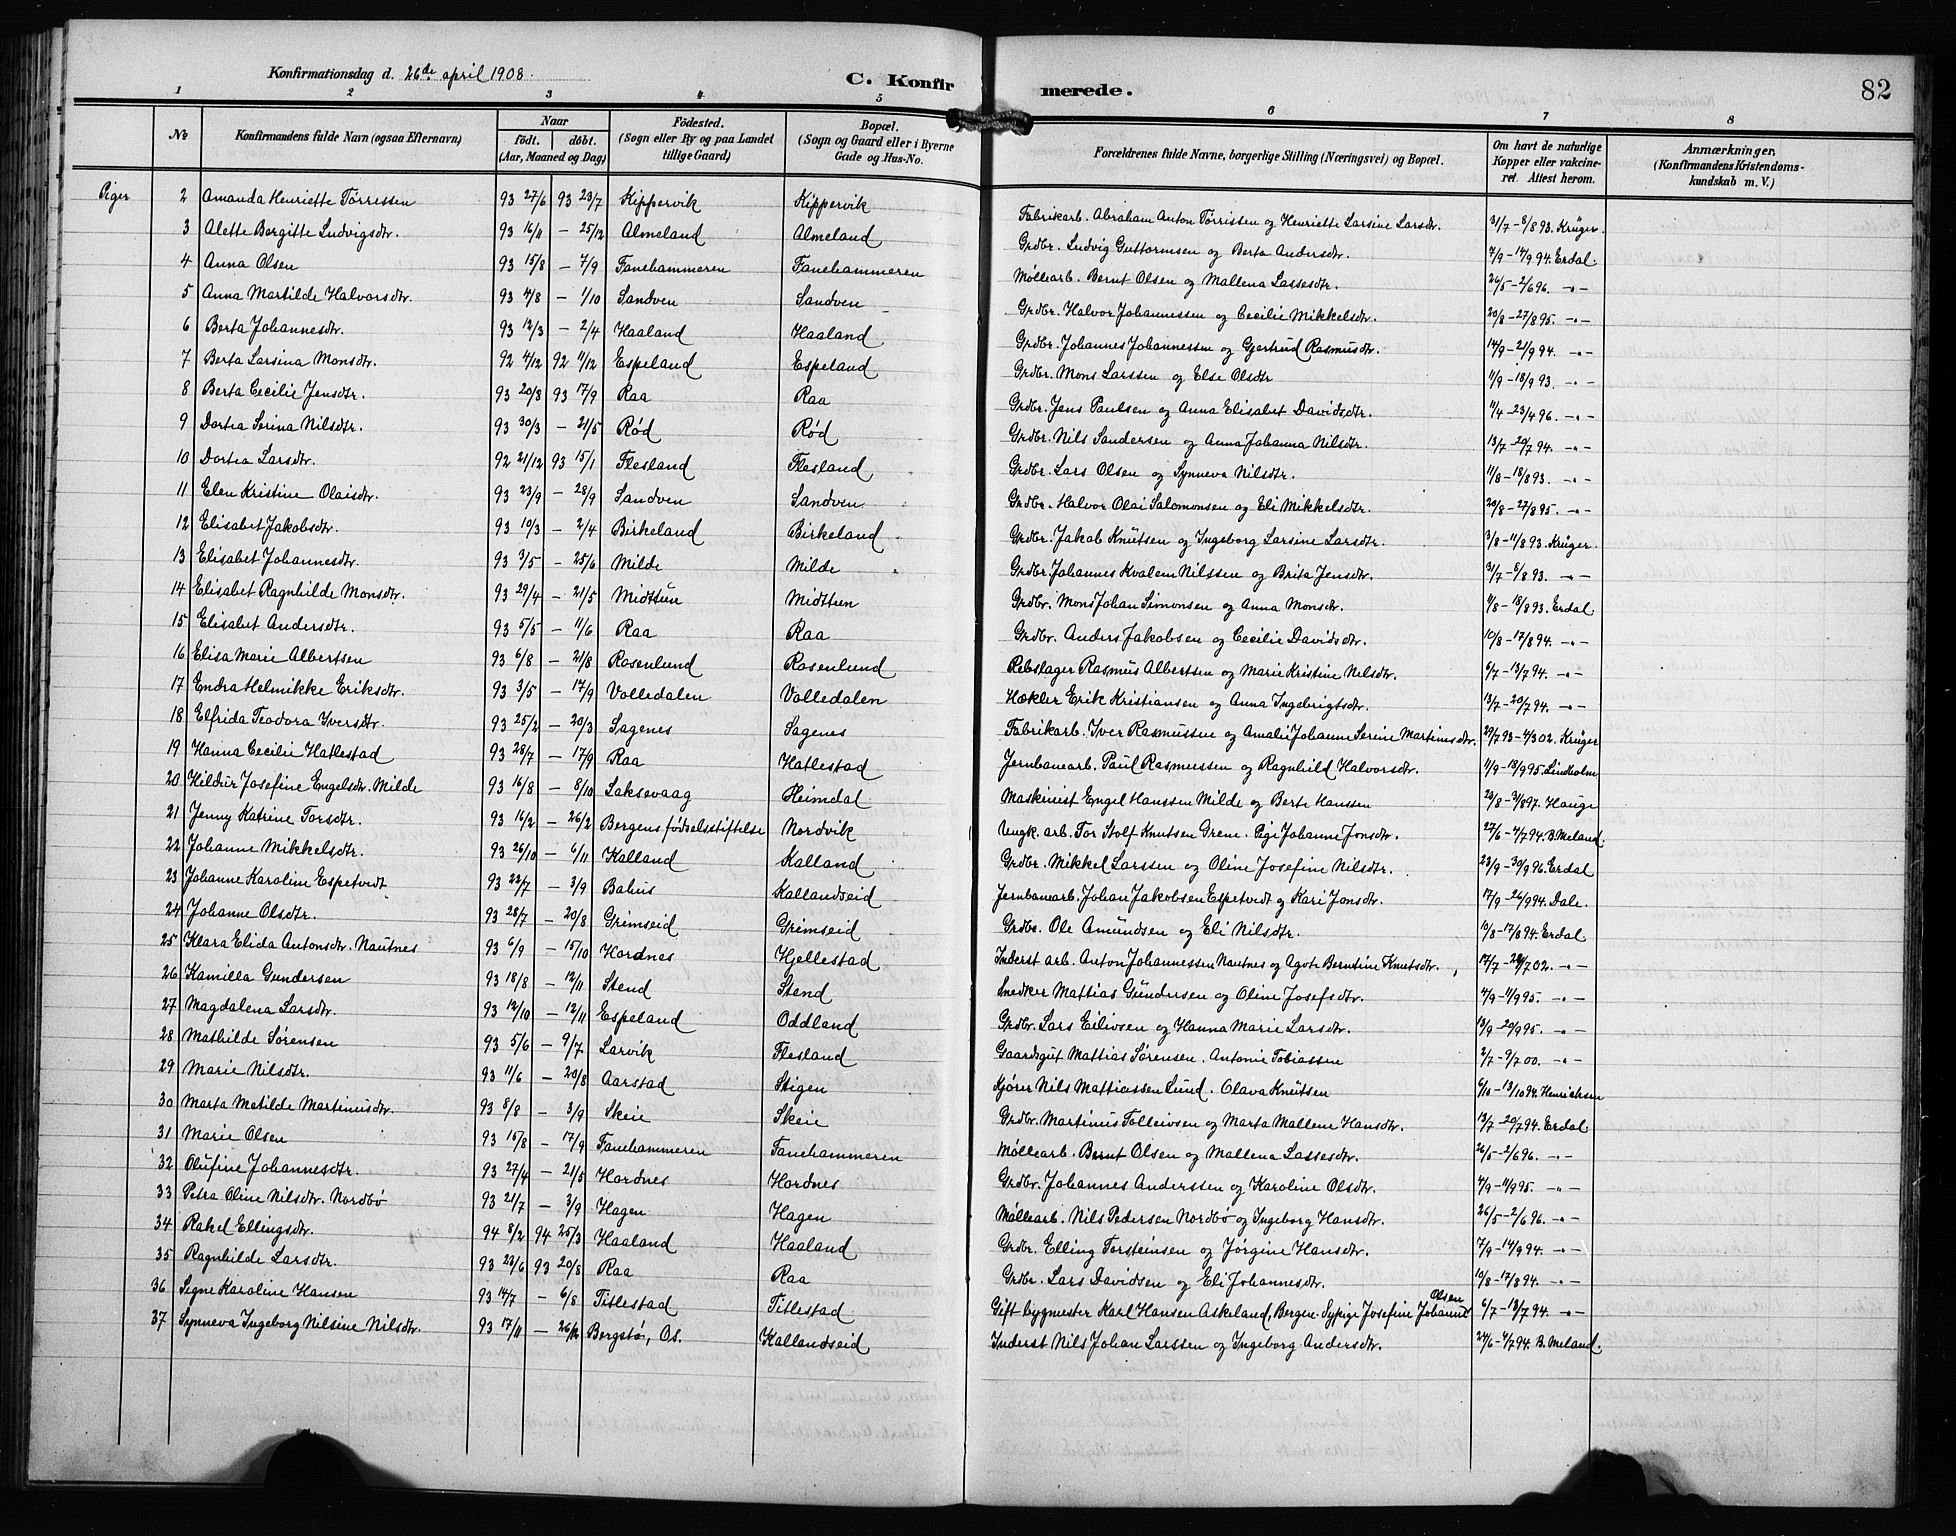 Konfirmationsdag d. 26de april 1908.
C. Konfirmerede.
82
1 2 3 4 5 6 7 8
No Konfirmandens fulde Navn (ogsaa Efternavn) Naar født. døbt. (Aar, Maaned og Dag) Fødested. (Sogn eller By og paa Landet tillige Gaard) Bopæl. (Sogn og Gaard eller i Byerne Gade og Hus-No. Forældrenes fulde Navne, borgerlige Stilling (Næringsvei) og Bopæl. Om havt de naturlige Kopper eller vakcineret. Attest herom. Anmærkninger. (Konfirmandens Kristendomskundskab m. V.)
Piger 2 Amanda Henriette Tørressen 93 27/6 93 23/7 Kippervik Kippervik Fabrikarb. Abraham Anton Tørrissen og Henriette Larsine Larsdtr. 31/7 - 8/8 93. Krüger.
3 Alette Bergitte Ludvigsdtr. 93 16/11 - 25/12 Almeland Almeland Grdbr. Ludvig Guttormsen og Berta Andersdtr. 7/9 - 14/9 94. Erdal
4 Anna Olsen 93 15/8 - 7/9 Fanehammeren Fanehammeren Møllearb. Bernt Olsen og Mallena Lassesdtr. 26/5 - 2/6 96. -"-
5 Anna Martilde Halvorsdtr. 93 4/8 - 1/10 Sandven Sandven Grdbr. Halvor Johannessen og Cecilie Mikkelsdtr. 20/8 - 27/8 95. -"-
6 Berta Johannesdtr. 93 12/3 - 2/4 Haaland Haaland Grdbr. Johannes Johannessen og Gjertrud Rasmusdtr. 14/9 - 21/9 94. -"-
7 Berta Larsina Monsdtr. 92 4/12 92 11/12 Espeland Espeland Grdbr. Mons Larssen og Else Olsdtr 11/9 - 18/9 93. -"-
8 Berta Cecilie Jensdtr. 93 20/8 93 17/9 Raa Raa Grdbr. Jens Paulsen og Anna Elisabet Davidsdtr. 11/4 - 23/4 96. -"-
9 Dortea Serina Nilsdtr. 93 30/3 - 21/5 Rød Rød Grdbr. Nils Sandersen og Anna Johanna Nilsdtr. 13/7 - 20/7 94. -"-
10 Dortea Larsdtr. 92 21/12 93 15/1 Flesland Flesland Grdbr. Lars Olsen og Synneva Nilsdtr. 11/8 - 18/8 93. -"-
11 Elen Kristine Olaisdtr. 93 23/9 - 28/9 Sandven Sandven Grdbr. Halvor Olai Salomonsen og Eli Mikkelsdtr. 20/8 - 27/8 95. -"-
12 Elisabet Jakobsdtr. 93 10/3 - 2/4 Birkeland Birkeland Grdbr. Jakob Knutsen og Ingeborg Larsine Larsdtr. 3/8 - 11/8 93. Krüger.
13 Elisabet Johannesdtr. 93 3/5 - 25/6 Milde Milde Grdbr. Johannes Kvalem Nilssen og Brita Jensdtr. 31/7 - 8/8 93. -"-
14 Elisabet Ragnhilde Monsdtr. 93 29/4 - 21/5 Midttun Midttun Grdbr. Mons Johan Simonsen og Anna Monsdtr. 11/8 - 18/8 93. Erdal
15 Elisabet Andersdtr. 93 5/5 - 11/6 Raa Raa Grdbr. Anders Jakobsen og Cecilie Davidsdtr. 10/8 - 17/8 94. -"-
16 Elisa Marie Albertsen 93 6/8 - 21/8 Rosenlund Rosenlund Rebslager Rasmus Albertsen og Marie Kristine Nilsdtr. 6/7 - 13/7 94. -"-
17 Endra Helmikke Eriksdtr. 93 3/5 - 17/9 Volledalen Volledalen Hækler Erik Kristiansen og Anna Ingebrigtsdtr. 13/7 - 20/7 94. -"-
18 Elfrida Teodora Iversdtr. 93 25/2 - 20/3 Sagenes Sagenes Fabrikarb. Iver Rasmussen og Amalie Johanne Serine Martinusdtr. 29/7 93 - 4/3 02. Krüger
19 Hanna Cecilie Hatlestad 93 28/7 - 17/9 Raa Hatlestad Jernbanearb. Paul Rasmussen og Ragnhild Halvorsdtr. 11/9 - 18/9 95. Lindholm
20 Hildur Josefine Engelsdtr. Milde 93 16/8 - 8/10 Laksevaag Heimdal Maskinist Engel Hanssen Milde og Berte Hanssen 23/8 - 31/8 97. Hauge
21 Jenny Katrine Torsdtr. 93 16/2 - 26/2 Bergens fødselsstiftelse Nordvik Ungk. arb. Tor Stolf Knutsen Grene. Pige Johanne Jonsdtr. 27/6 - 4/7 94. B. Meland.
22 Johanne Mikkelsdtr. 93 26/10 - 6/11 Kalland Kalland Grdbr. Mikkel Larssen og Oline Josefine Nilsdtr. 23/9 - 30/9 96. Erdal
23 Johanne Karoline Espetvedt 93 22/7 - 3/9 Bahus Kallandseid Jernbanearb. Johan Jakobsen Espetvedt og Kari Jonsdtr. 17/9 - 26/9 94. Dale.
24 Johanne Olsdtr. 93 28/7 - 20/8 Grimseid Grimseid Grdbr. Ole Amundsen og Eli Nilsdtr. 10/8 - 17/8 94. Erdal
25 Klara Elida Antonsdtr. Nautnes 93 6/9 - 15/10 Hordnes Hjellestad Inderst arb. Anton Johannessen Nautnes og Agote Berntine Knutsdtr. 17/7 - 24/7 02. -"-
26 Kamilla Gundersen 93 18/8 - 12/11 Stend Stend Snedker Mattias Gundersen og Oline Josefsdtr. 4/9 - 11/9 95. -"-
27 Magdalena Larsdtr. 93 12/10 - 12/11 Espeland Oddland Grdbr. Lars Eilivsen og Hanna Marie Larsdtr. 13/9 - 20/9 95. -"-
28 Mathilde Sørensen 93 5/6 - 9/7 Larvik Flesland Gaardsgut Mattias Sørensen. Antonie Tobiassen 2/7 - 9/7 00. -"-
29 Marie Nilsdtr. 93 11/6 - 20/8 Aarstad Stigen Kjører Nils Mattiassen Lund. Olava Knutsen 6/10 - 13/10 94. Henrichsen
30 Marta Matilde Martinusdtr. 93 8/8 - 3/9 Skeie Skeie Grdbr. Martinus Tolleivsen og Marta Mallene Hansdtr. 13/7 - 20/7 94. Erdal
31 Marie Olsen 93 15/8 - 17/9 Fanehammeren Fanehammeren Møllearb. Bernt Olsen og Mallena Lassesdtr. 26/5 - 2/6 96. -"-
32 Olufine Johannesdtr. 93 27/4 - 21/5 Hordnes Hordnes Grdbr. Johannes Anderssen og Karoline Olsdtr. 4/9 - 11/9 95. -"-
33 Petra Oline Nilsdtr. Nordbø 93 21/7 - 3/9 Hagen Hagen Møllearb. Nils Pedersen Nordbø og Ingeborg Hansdtr. 26/5 - 2/6 96. -"-
34 Rakel Ellingsdtr. 94 8/2 94 25/3 Haaland Haaland Grdbr. Elling Torsteinsen og Jørgine Hansdtr. 7/9 - 14/9 94. -"-
35 Ragnhilde Larsdtr. 93 23/6 93 20/8 Raa Raa Grdbr. Lars Davidsen og Eli Johannesdtr. 10/8 - 17/8 94. -"-
36 Signe Karoline Hansen 93 14/7 - 6/8 Titlestad Titlestad Gift bygmester Karl Hansen Askeland, Bergen. Sypige Josefine Johanne Olsen 6/7 - 13/7 94. -"-
37 Synneva Ingeborg Nilsine Nilsdtr. 93 17/11 - 26/12 Bergstø, Os. Kallandseid Inderst Nils Johan Larssen og Ingeborg Andersdtr. 24/6 - 4/7 94. B. Meland.